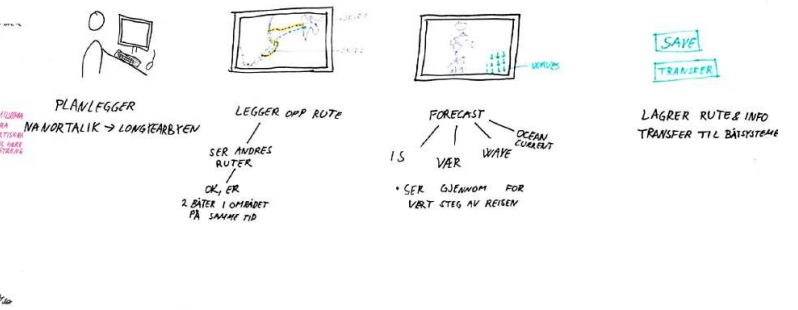 PLANLEGGER
NANORTALIK → LONGYEARBYEN
LEGGER OPP RUTE
SER ANDRES
RUTER
OK, ER
2 BÅTER I OMRÅDET
PÅ SAMME TID
WAVES
FORECAST
IS
VÆR
WAVE
OCEAN
CURRENT
• SER GJENNOM FOR
VÆRT STEG AV REISEN
SAVE
TRANSFER
LAGRER RUTE & INFO
TRANSFER TIL BÅTSYSTEME